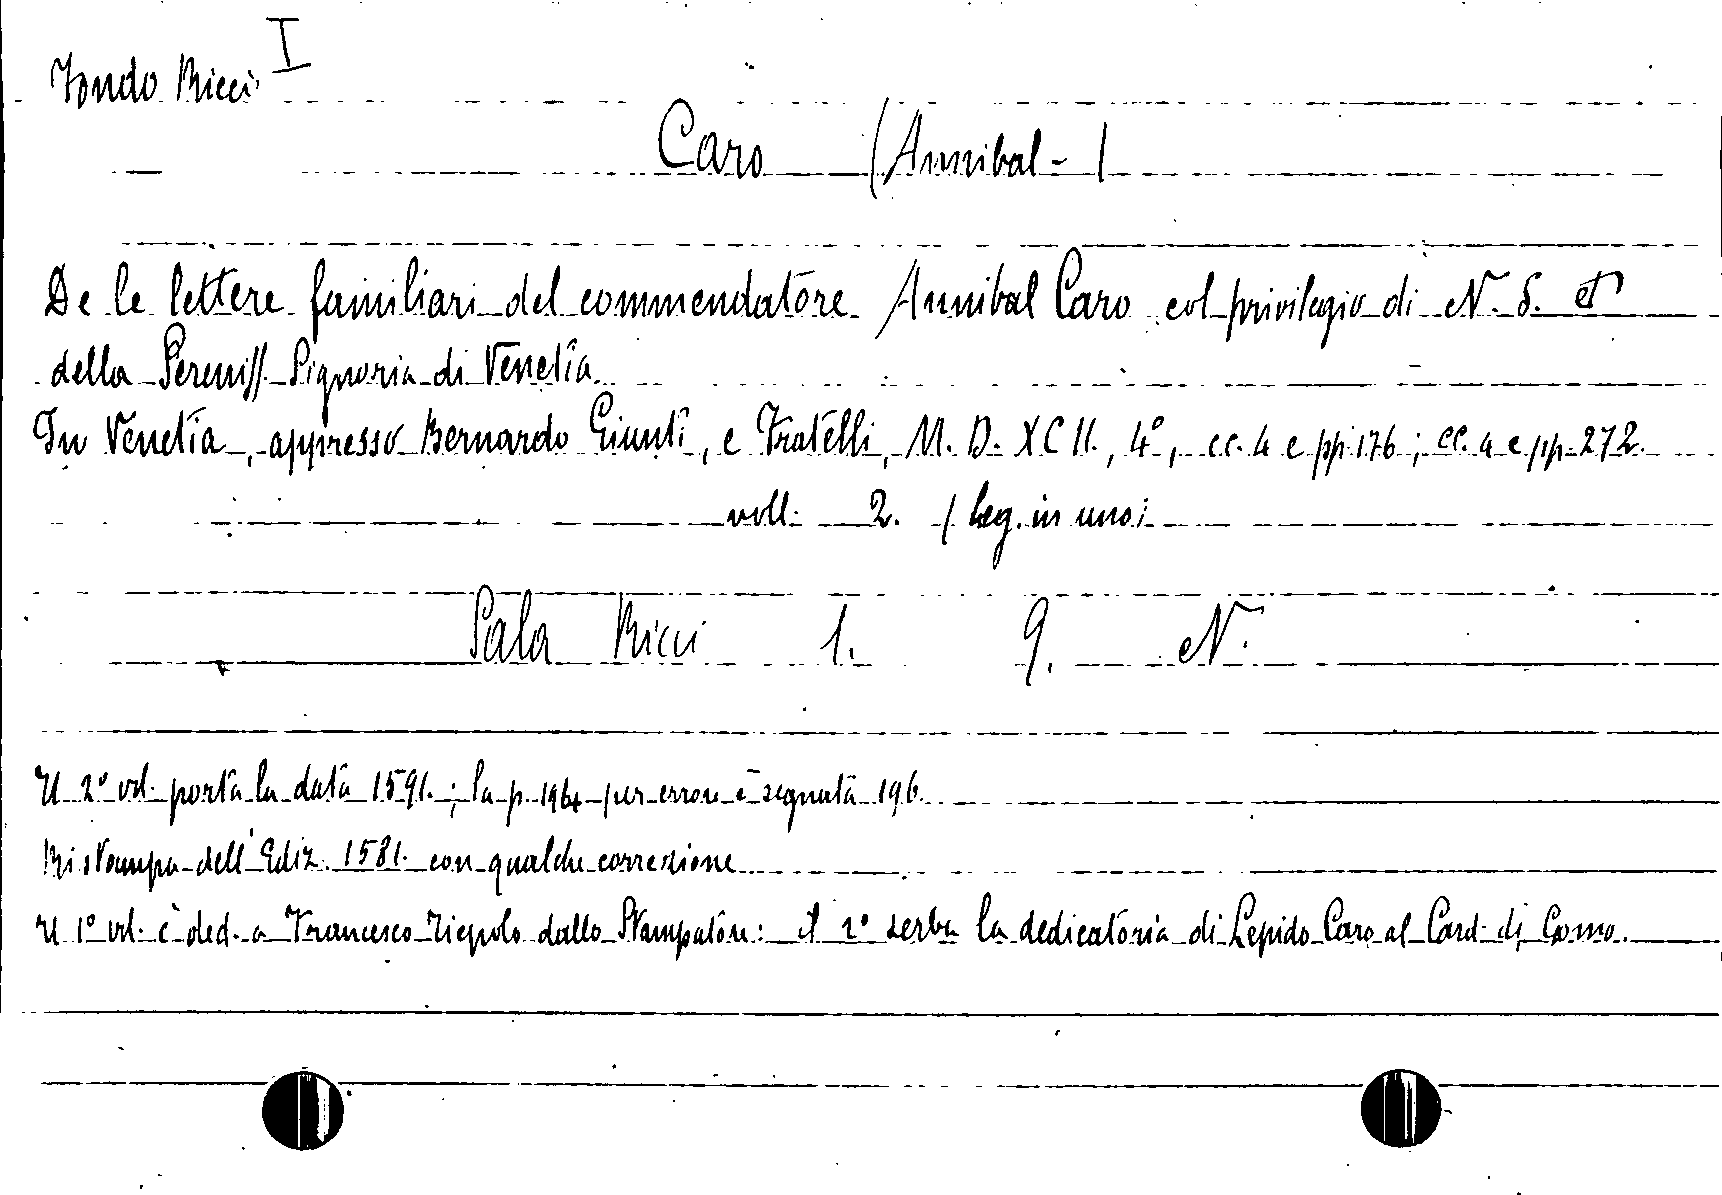 Fondo Ricci I
Caro (Annibal-)
De le lettere familiari del commendatore Annibal Caro col privilegio di N. S. et
della Sereniss. Signoria di Venetia.
In Venetia, appresso Bernardo Giunti, e Fratelli, M. D. XCII., 4°, cc. 4 e pp. 176; cc. 4 e pp. 272.
voll. 2. (leg. in uno)
Sala Ricci 1. 9. N.
Il 2° vol. porta la data 1591.; la p. 194 per errore è segnata 196.
Ristampa dell'Ediz. 1581. con qualche correzione
Il 1° vol. è ded. a Francesco Tiepolo dallo Stampatore: il 2° serba la dedicatoria di Lepido Caro al Card. di Como.